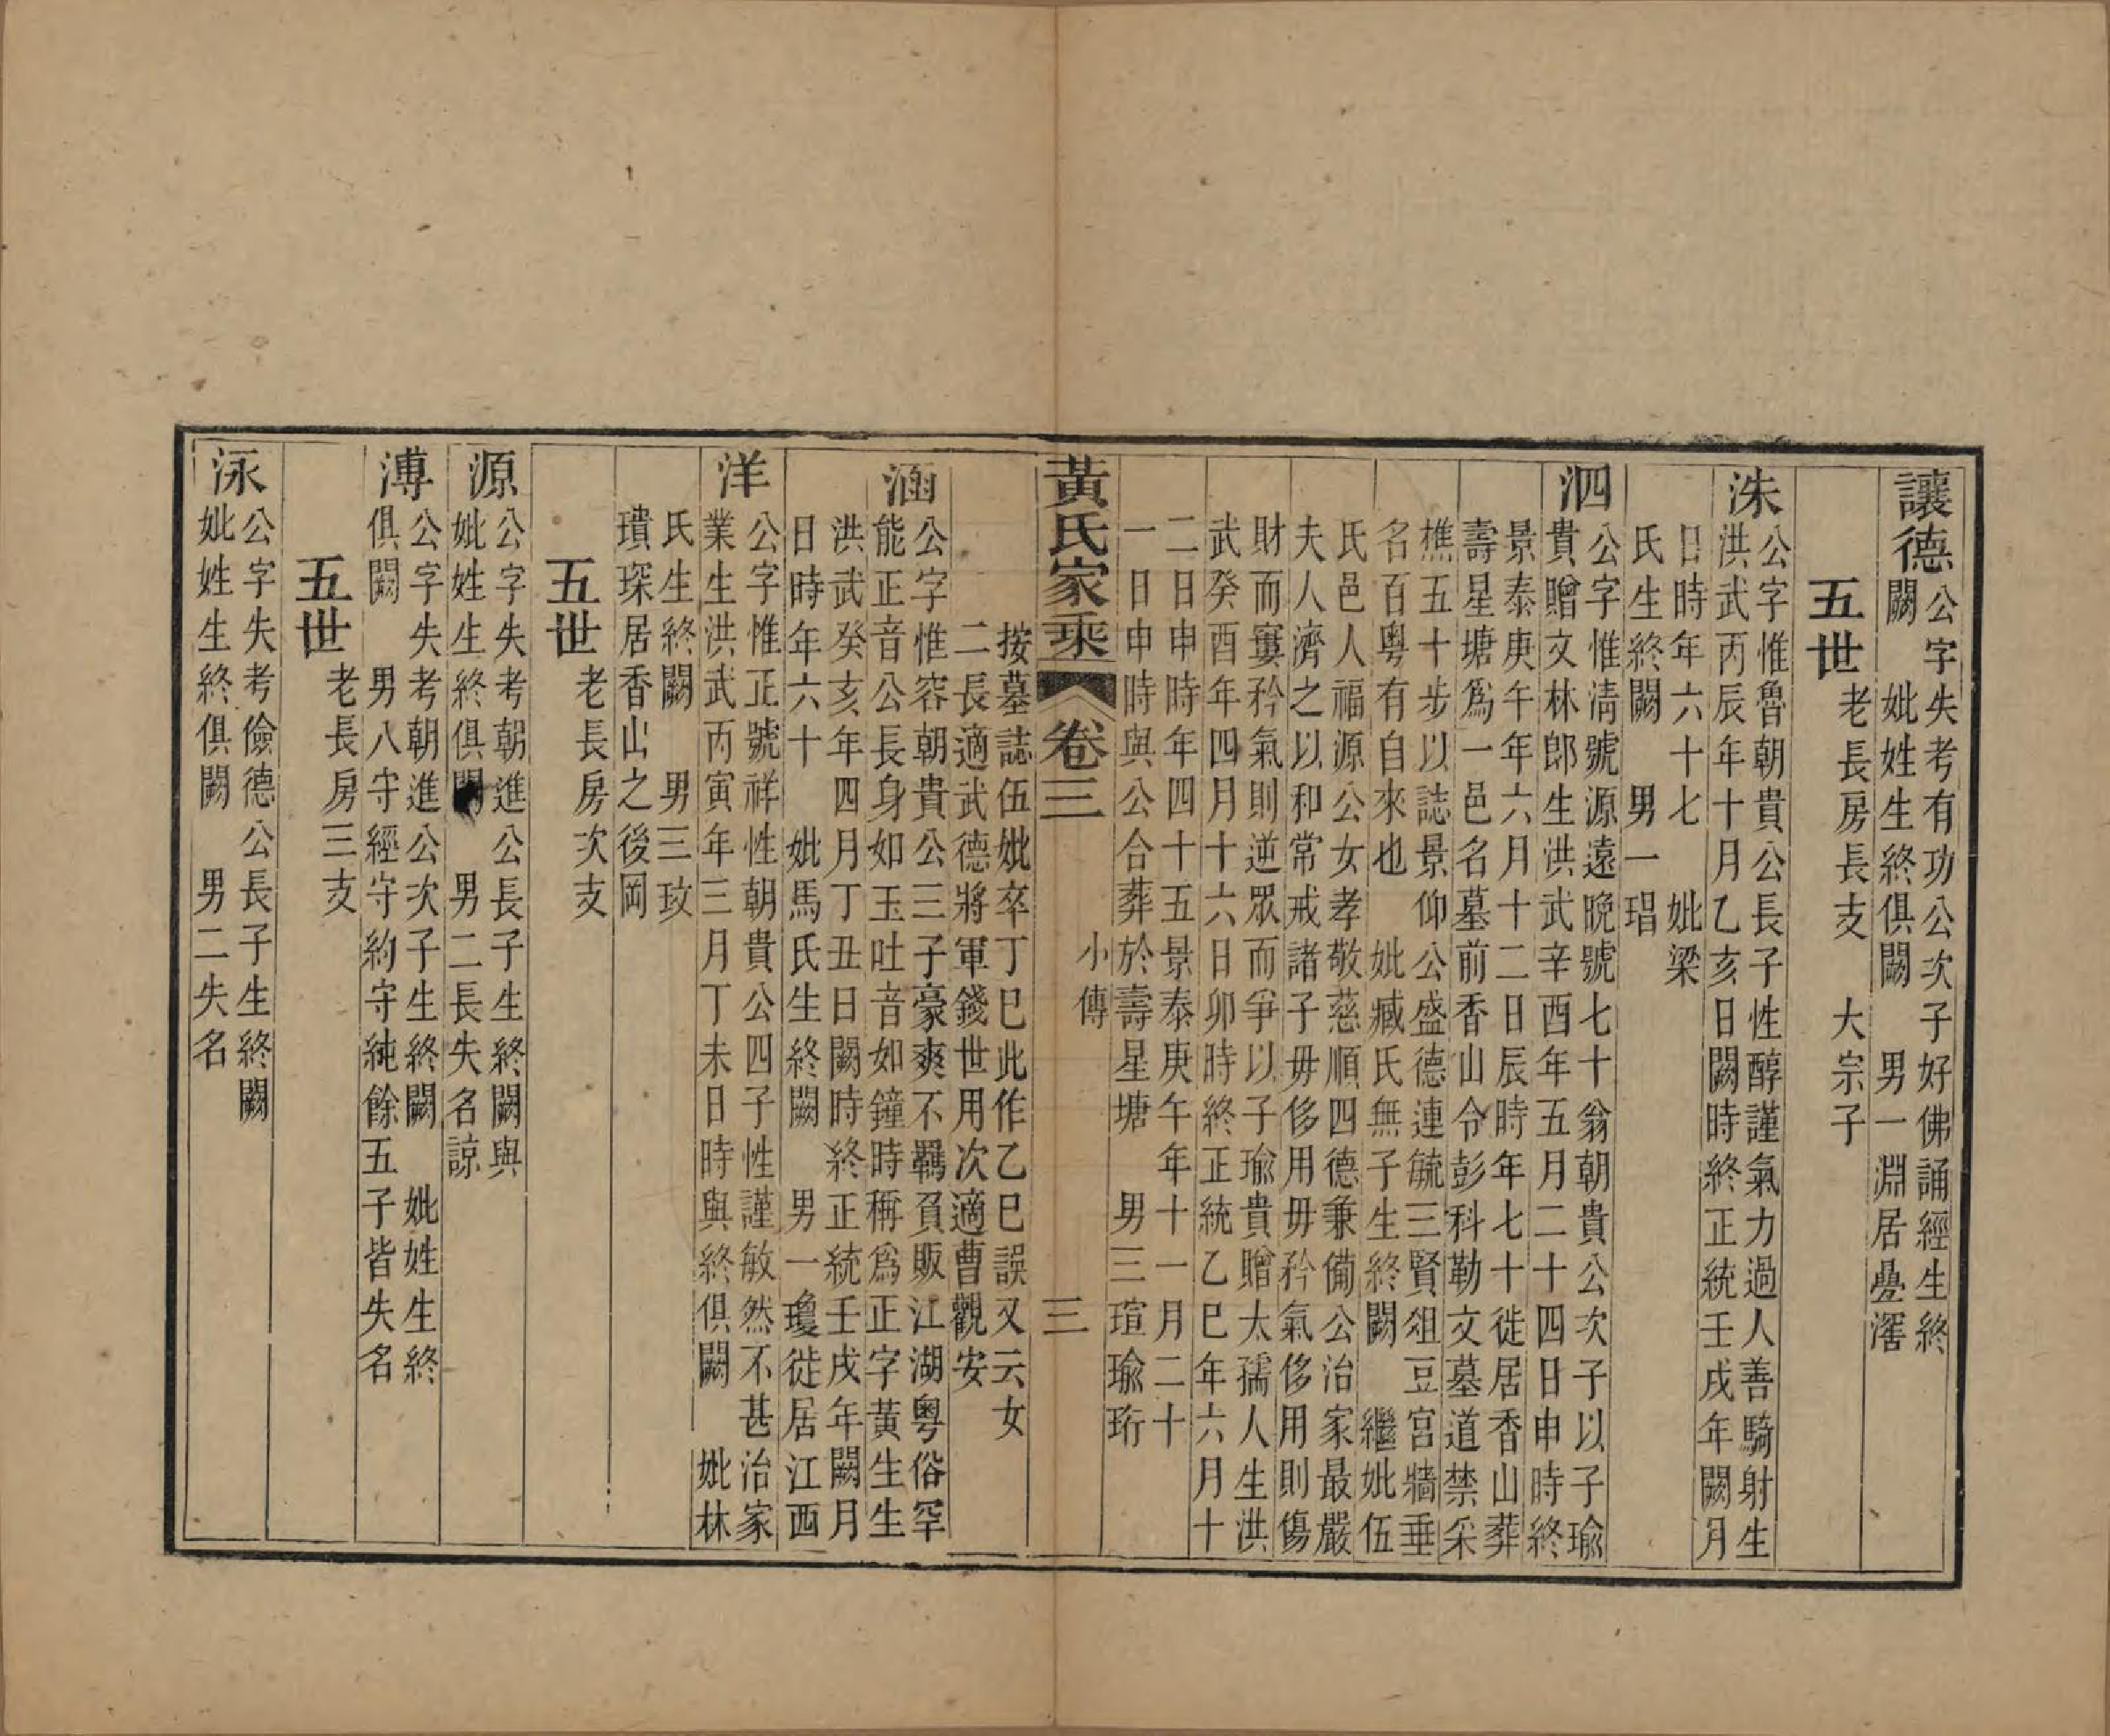 讓德
公字失考有功公次子好佛誦經生終
闕　妣姓生終俱闕　男一淵居疊滘
五世
老長房長支　大宗子
洙
公字惟魯朝貴公長子性醇謹氣力過人善騎射生
洪武丙辰年十月乙亥日闕時終正統壬戌年闕月
日時年六十七　妣梁
氏生終闕　男一琩
泗
公字惟淸號源遠晚號七十翁朝貴公次子以子瑜
貴贈文林郎生洪武辛酉年五月二十四日申時終
景泰庚午年六月十二日辰時年七十徙居香山葬
壽星塘爲一邑名墓前香山令彭科勒文墓道禁采
樵五十步以誌景仰公盛德連毓三賢俎豆宮牆垂
名百粵有自來也　妣臧氏無子生終闕　繼妣伍
氏邑人福源公女孝敬慈順四德兼備公治家最嚴
夫人濟之以和常戒諸子毋侈用毋矜氣侈用則傷
財而窶矜氣則逆眾而爭以子瑜貴贈太孺人生洪
武癸酉年四月十六日卯時終正統乙巳年六月十
二日申時年四十五景泰庚午年十一月二十
一日申時與公合葬於壽星塘　男三瑄瑜珩
黃氏家乘　卷三　小傳　三
按墓誌伍妣卒丁巳此作乙巳誤又云女
二長適武德將軍錢世用次適曹觀安
涵
公字惟容朝貴公三子豪爽不羈負販江湖粵俗罕
能正音公長身如玉吐音如鐘時稱爲正字黃生生
洪武癸亥年四月丁丑日闕時終正統壬戌年闕月
日時年六十　妣馬氏生終闕　男一瓊徙居江西
洋
公字惟正號祥性朝貴公四子性謹敏然不甚治家
業生洪武丙寅年三月丁未日時與終俱闕　妣林
氏生終闕　男三玫
璝琛居香山之後岡
五世
老長房次支
源
公字失考朝進公長子生終闕與
妣姓生終俱闕　男二長失名諒
溥
公字失考朝進公次子生終闕　妣姓生終
俱闕　男八守經守約守純餘五子皆失名
五世
老長房三支
泳
公字失考儉德公長子生終闕
妣姓生終俱闕　男二失名